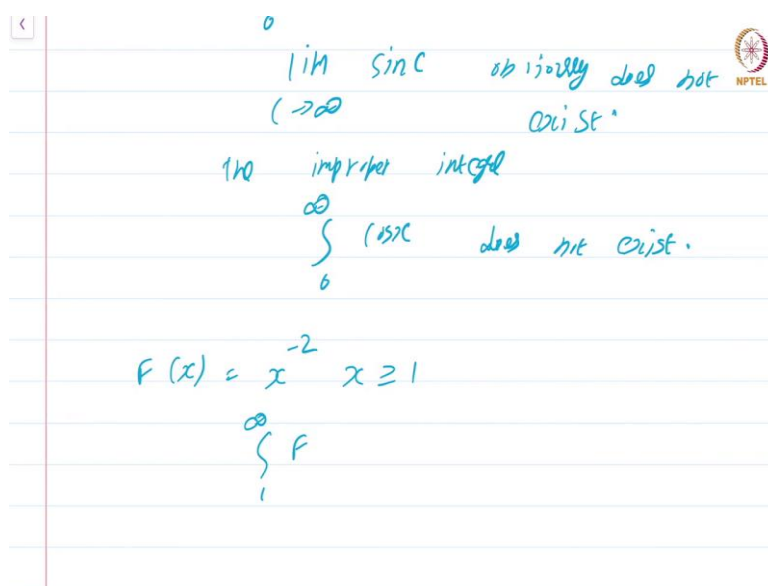 0
lim sin c obviously does not
c→∞ exist.
NPTEL
The improper integral
∞
∫ cos x does not exist.
0
F(x) = x⁻² x ≥ 1
∞
∫ F
1